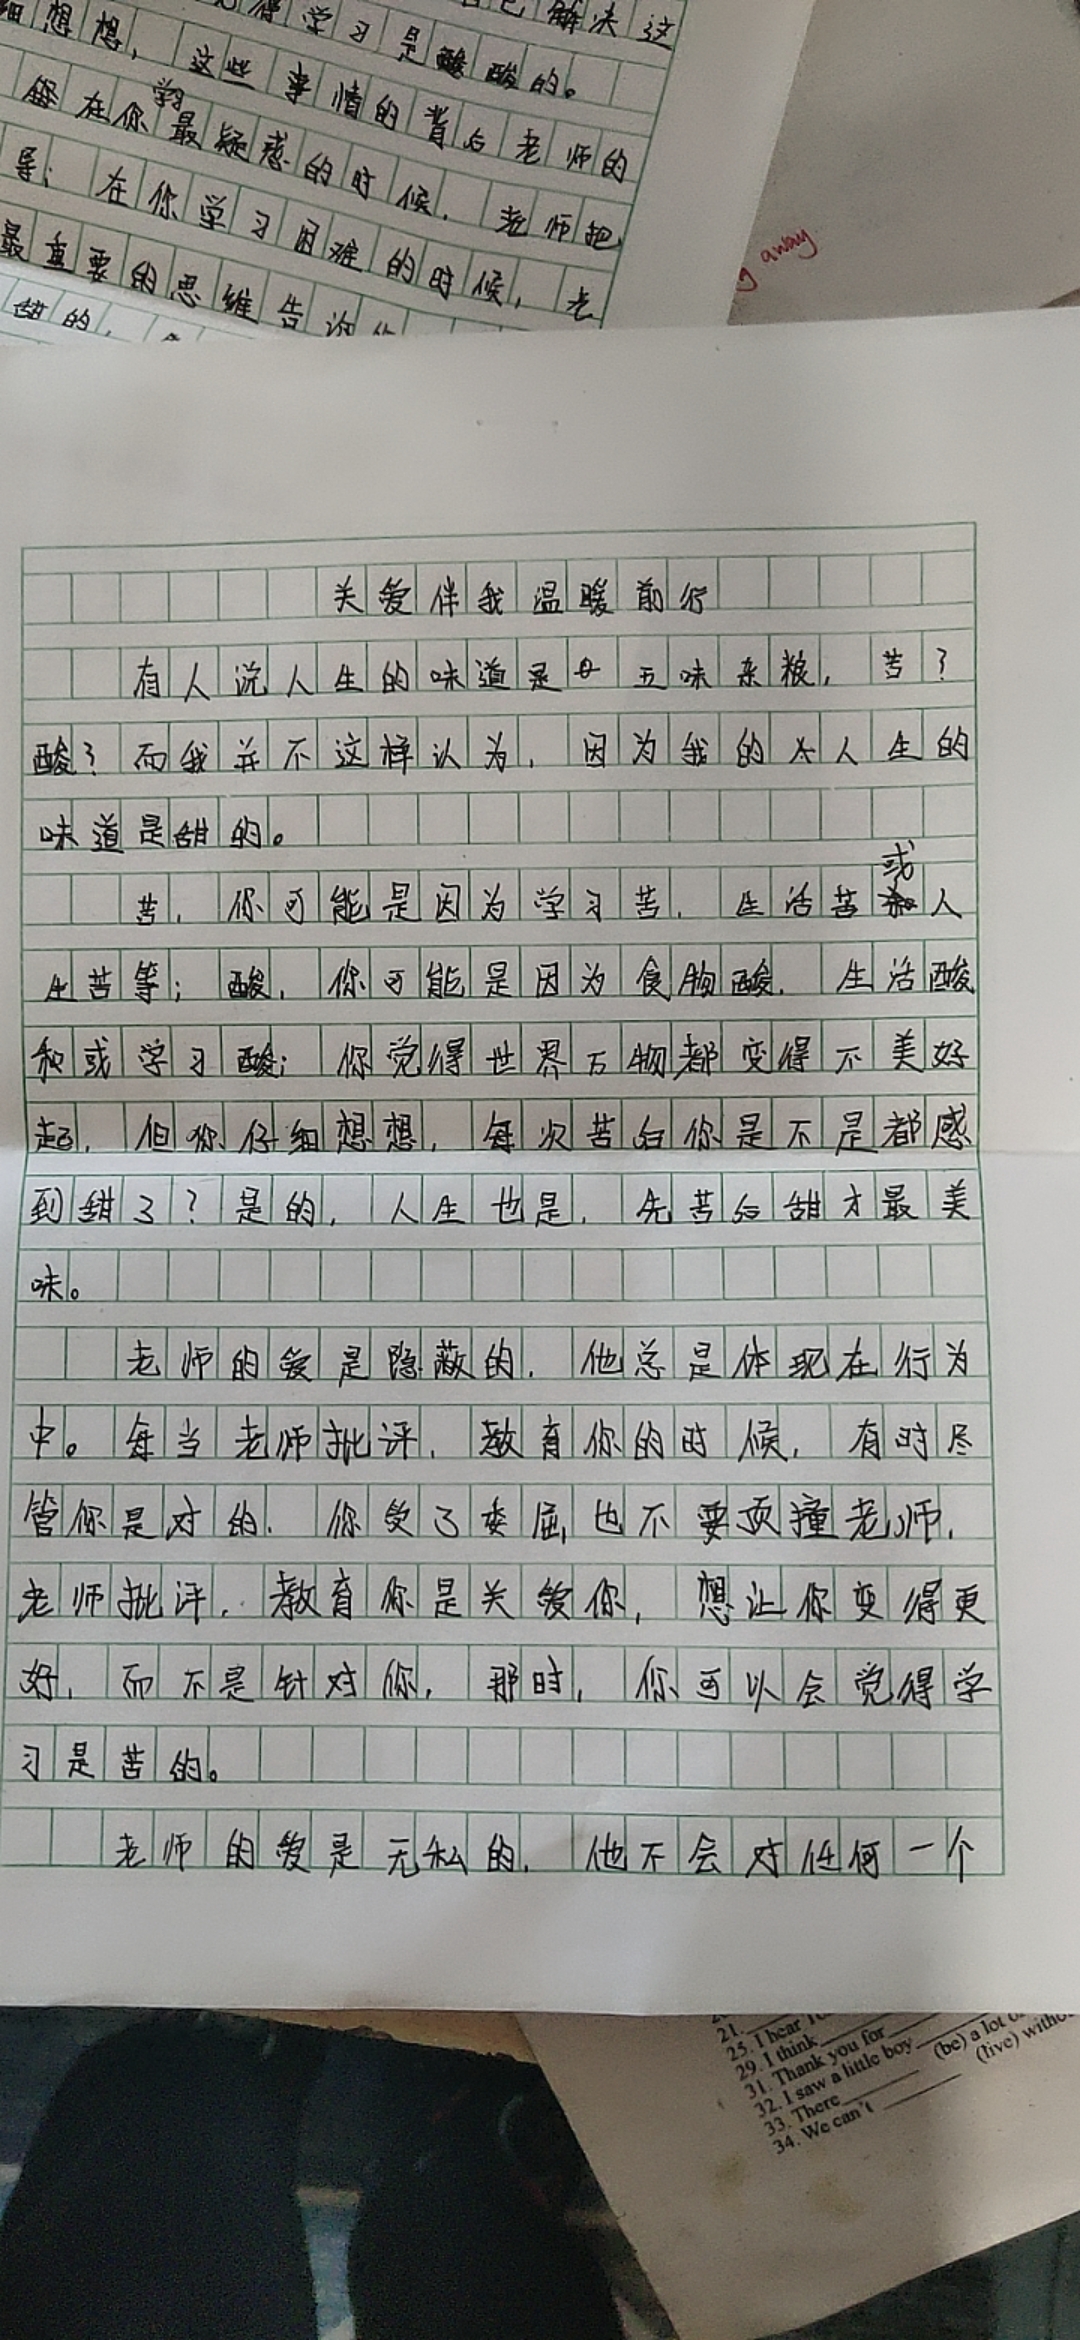 解决这
细想想，这些事情的背后老师的
学习是酸酸的。
解在你学习最疑惑的时候，老师把
导；在你学习困难的时候，老
最重要的思维告诉
甜的，
away
关爱伴我温暖前行
有人说人生的味道是五味杂粮，苦？
酸？而我并不这样认为，因为我的人生的
味道是甜的。
苦，你可能是因为学习苦，生活苦或人
生苦等；酸，你可能是因为食物酸，生活酸
和或学习酸；你觉得世界万物都变得不美好
起，但你仔细想想，每次苦后你是不是都感
到甜了？是的，人生也是，先苦后甜才最美
味。
老师的爱是隐蔽的，他总是体现在行为
中。每当老师批评，教育你的时候，有时尽
管你是对的，你受了委屈，也不要顶撞老师，
老师批评，教育你是关爱你，想让你变得更
好，而不是针对你，那时，你可以会觉得学
习是苦的。
老师的爱是无私的，他不会对任何一个
21.
25. I hear
29. I think
31. Thank you for
32. I saw a little boy (be) a lot
33. There (live)
34. We can't